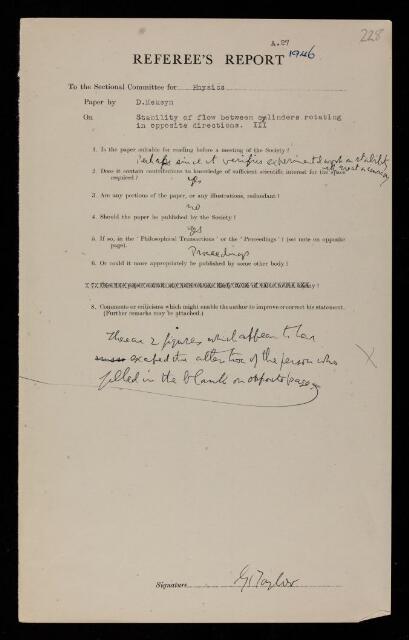 228
A.89
REFEREE'S REPORT 1946
To the Sectional Committee for Physics
Paper by D.Meksyn
On Stability of flow between cylinders rotating
in opposite directions. III
1. Is the paper suitable for reading before a meeting of the Society?
Perhaps since it verifies experimental work on stability
2. Does it contain contributions to knowledge of sufficient scientific interest for the space
required?
yes
3. Are any portions of the paper, or any illustrations, redundant?
no
4. Should the paper be published by the Society?
yes
5. If so, in the 'Philosophical Transactions' or the 'Proceedings'? (see note on opposite
page).
Proceedings
6. Or could it more appropriately be published by some other body?
8. Comments or criticisms which might enable the author to improve or correct his statement.
(Further remarks may be attached.)
There are 2 figures which appear to have
escaped the attention of the person who
filled in the blank on opposite page
X
Signature GI Taylor